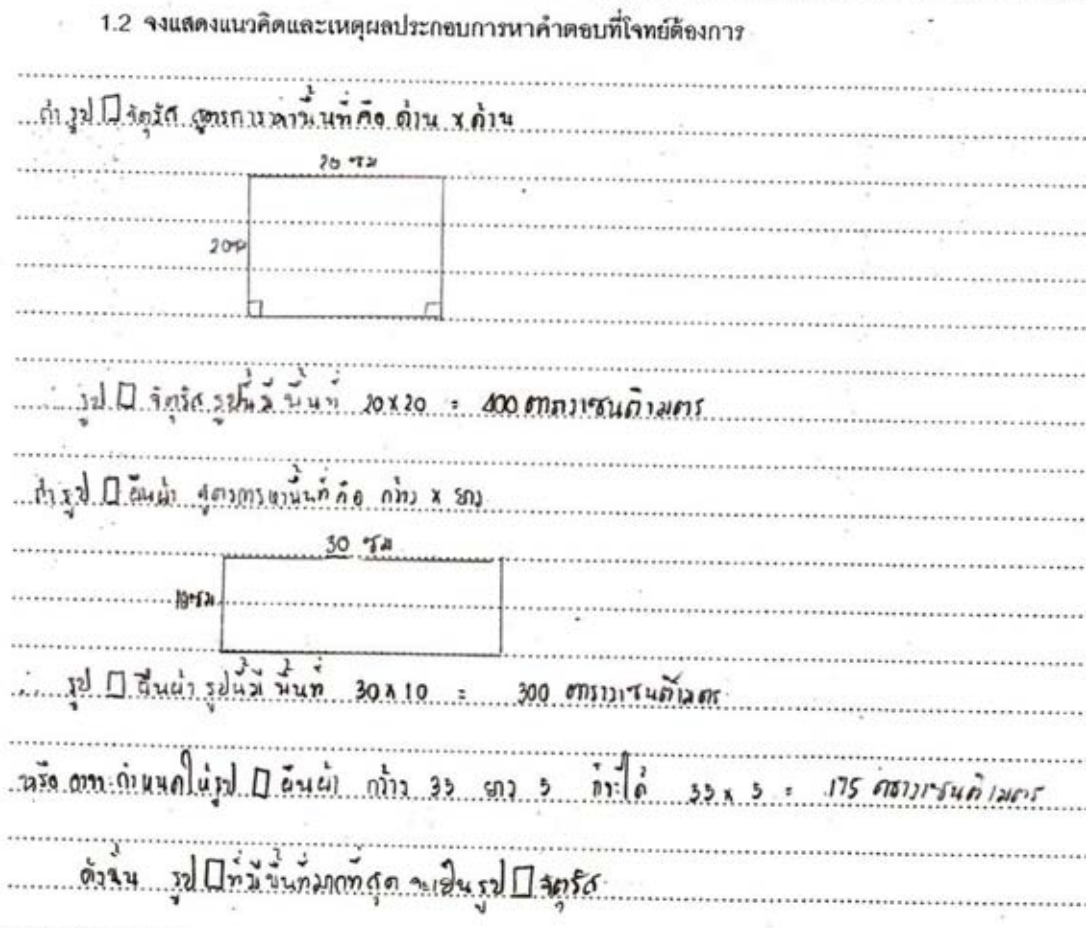 1.2 จงแสดงแนวคิดและเหตุผลประกอบการหาคำตอบที่โจทย์ต้องการ
ถ้า รูป □ จัตุรัส สูตรการหาพื้นที่ คือ ด้าน x ด้าน
20 ซม
20ซม
∴ รูป □ จัตุรัส รูปนี้มี พื้นที่ 20x20 = 400 ตารางเซนติเมตร
ถ้า รูป □ ผืนผ้า สูตรการหาพื้นที่ คือ กว้าง x ยาว
30 ซม
10ซม
∴ รูป □ ผืนผ้า รูปนี้มี พื้นที่ 30x10 = 300 ตารางเซนติเมตร
หรือ อาจจะกำหนดให้รูป □ ผืนผ้า กว้าง 35 ยาว 5 ก็จะได้ 35 x 5 = 175 ตารางเซนติเมตร
ดังนั้น รูป □ ที่มีพื้นที่มากที่สุด จะเป็น รูป □ จัตุรัส